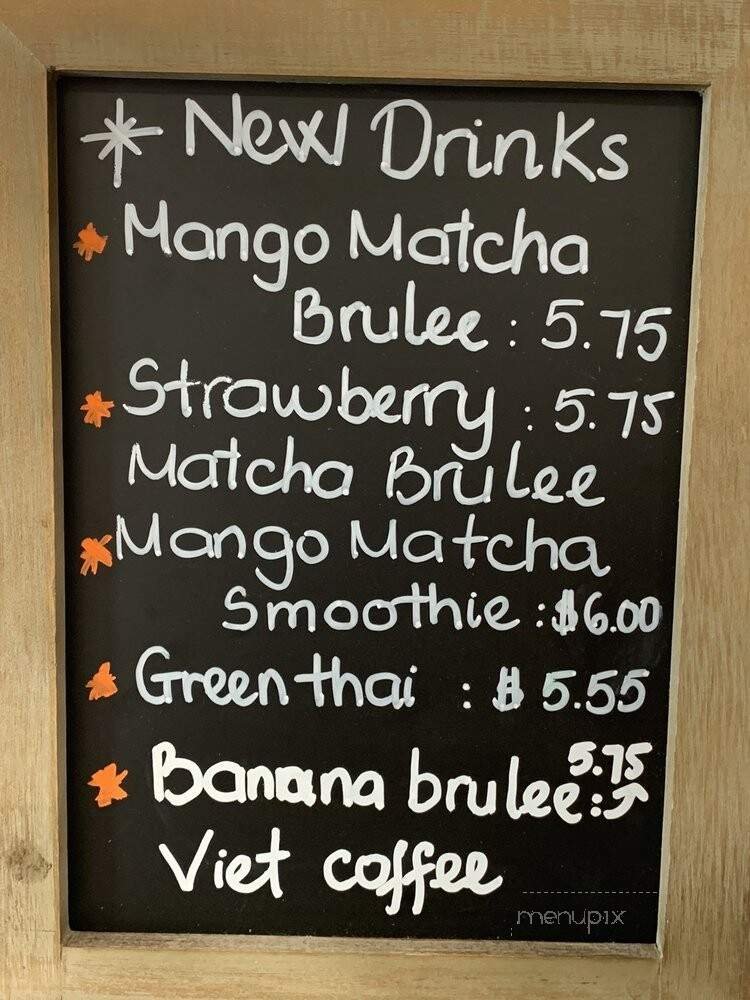 * New Drinks
Mango Matcha
Brulee : 5.75
Strawberry : 5.75
Matcha Brulee
Mango Matcha
Smoothie : $6.00
Green thai : $5.55
5.75
Banana brulee :
Viet coffee
menupix